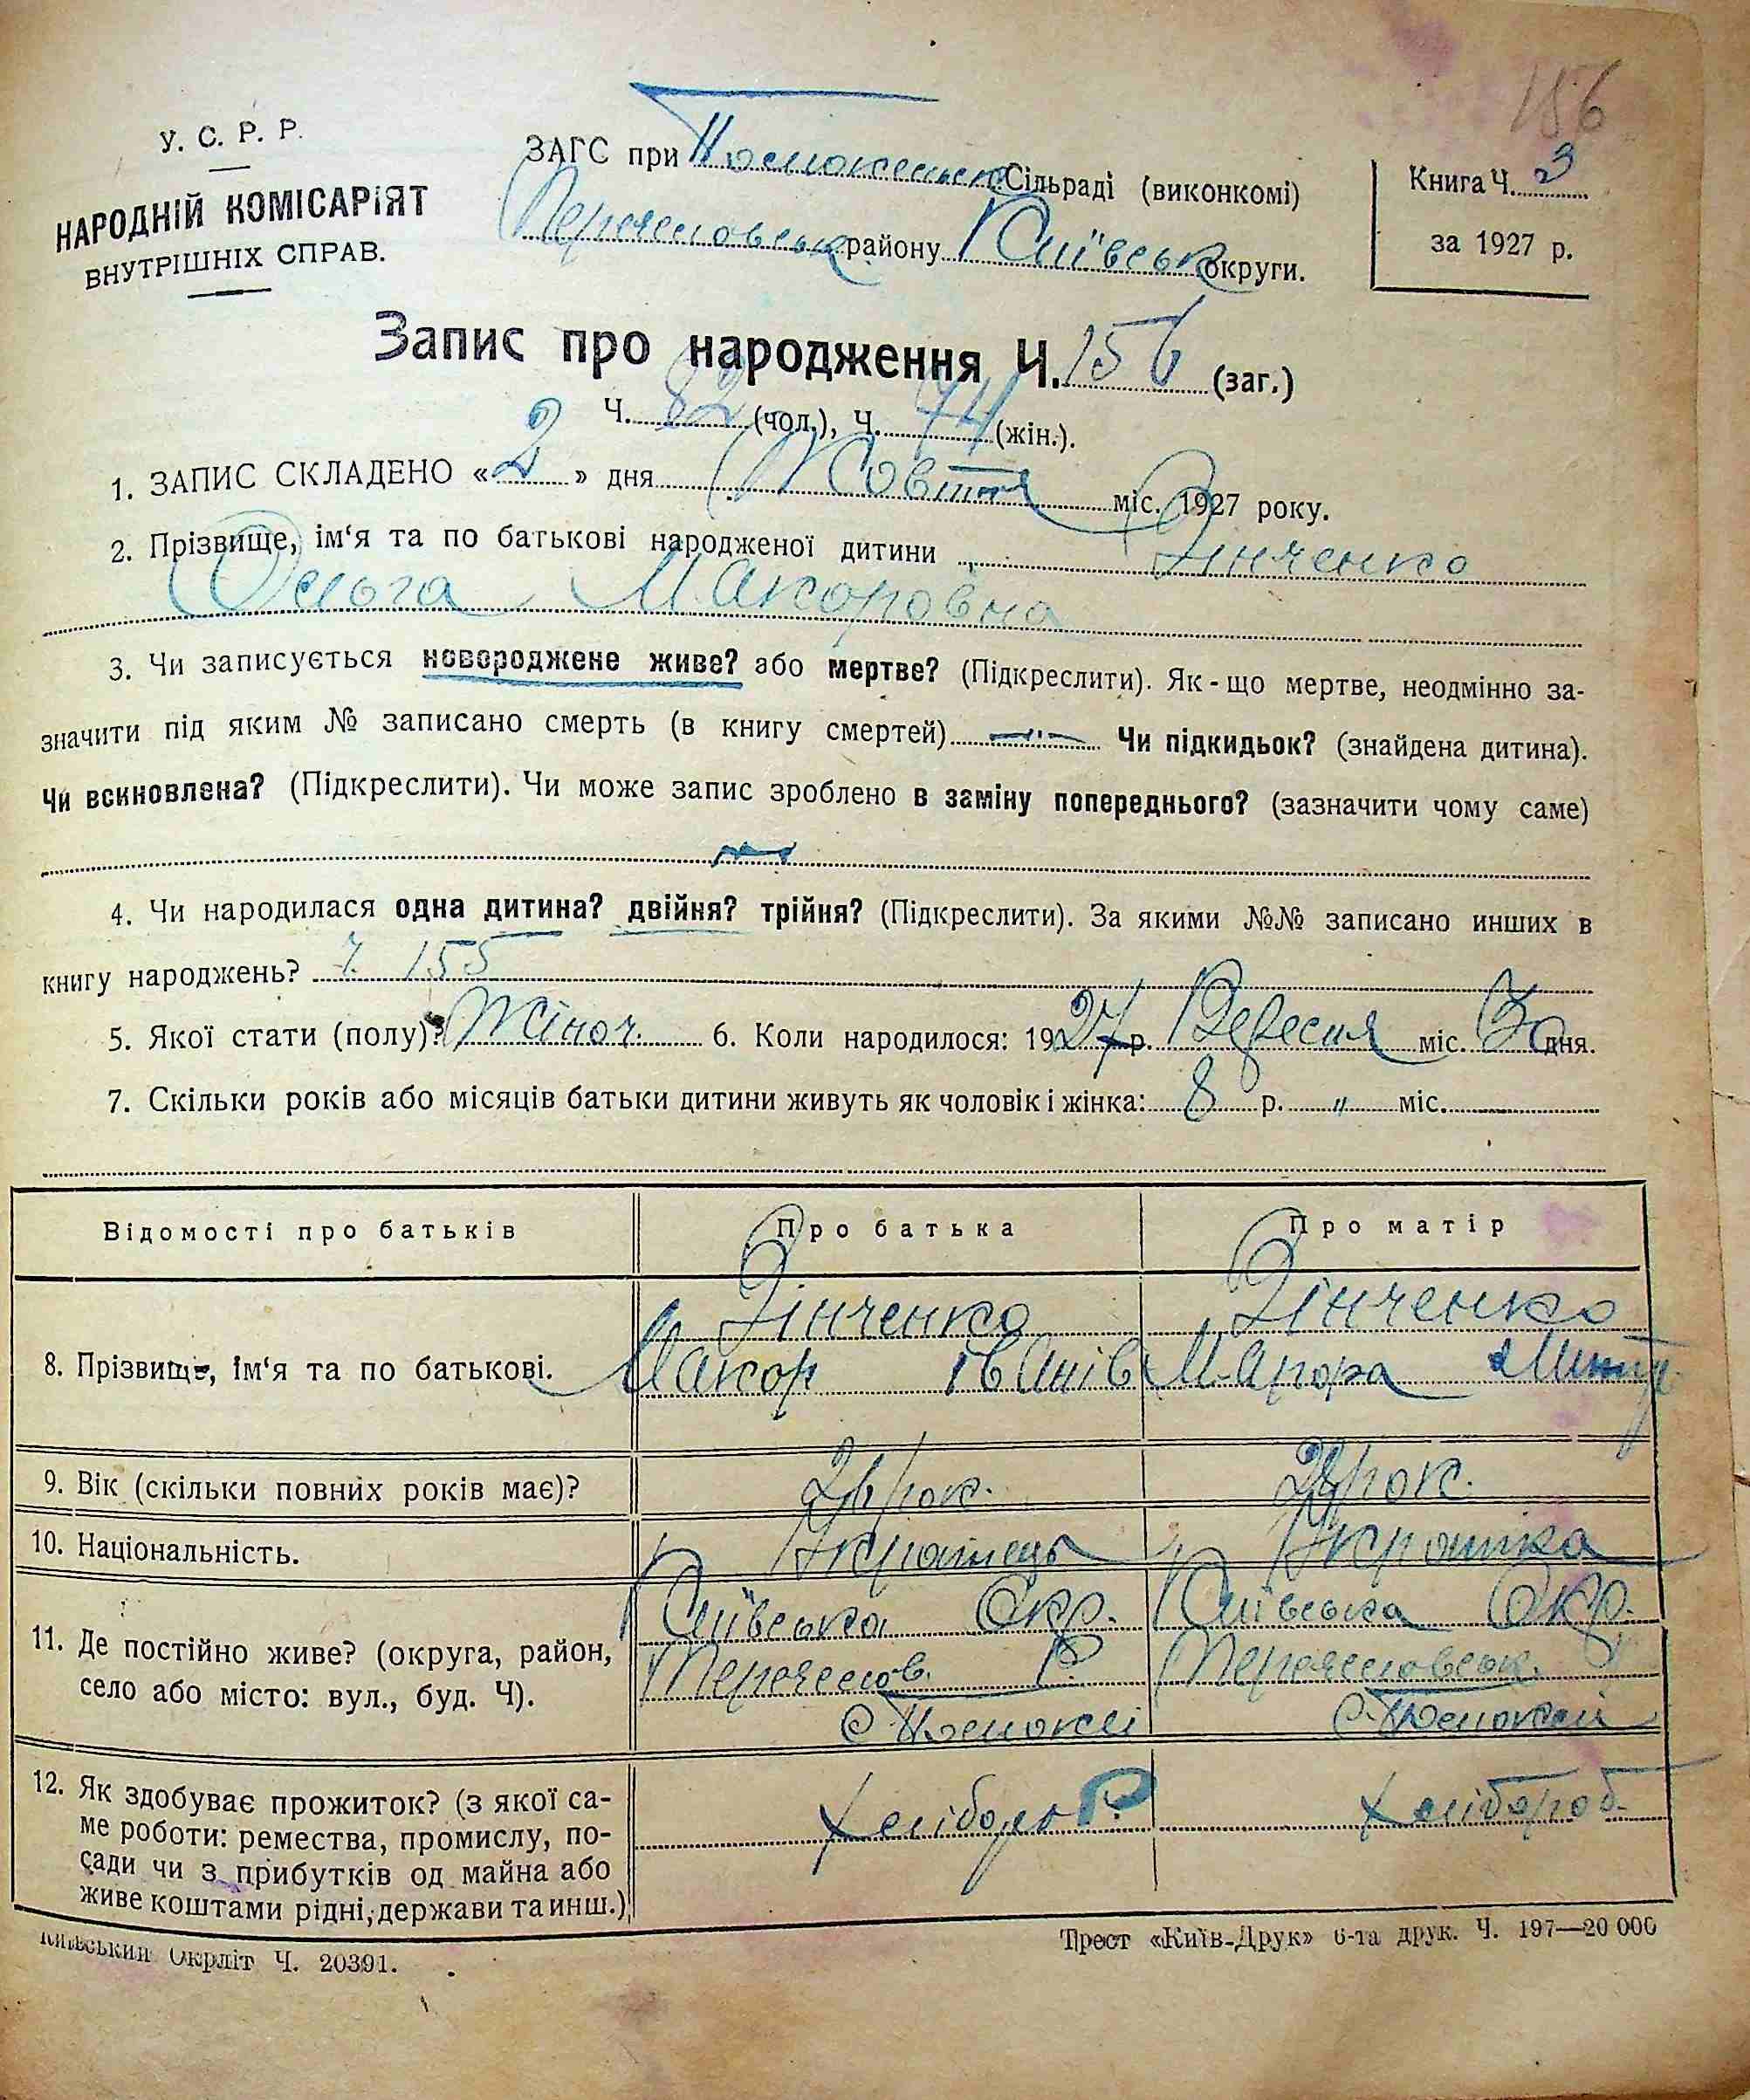 156
У. С. Р. Р.
НАРОДНІЙ КОМІСАРІЯТ
ВНУТРІШНІХ СПРАВ.
ЗАГС при Сільраді (виконкомі)
району Київськ округи.
Книга Ч. 3
за 1927 р.
Запис про народження Ч. 156 (заг.)
Ч. 82 (чол.), Ч. 74 (жін.).
1. ЗАПИС СКЛАДЕНО « 2 » дня Жовтня міс. 1927 року.
2. Прізвище, ім‘я та по батькові народженої дитини Зінченко
Ольга Макаровна
3. Чи записується новороджене живе? або мертве? (Підкреслити). Як-що мертве, неодмінно за-
значити під яким № записано смерть (в книгу смертей) Чи підкидьок? (знайдена дитина).
Чи всиновлена? (Підкреслити). Чи може запис зроблено в заміну попереднього? (зазначити чому саме)
4. Чи народилася одна дитина? двійня? трійня? (Підкреслити). За якими №№ записано инших в
книгу народжень? ч. 155
5. Якої стати (полу)? Жіноч. 6. Коли народилося: 1927 р. Вересня міс. 30 дня.
7. Скільки років або місяців батьки дитини живуть як чоловік і жінка: 8 р. „ міс.
Відомості про батьків Про батька Про матір
Зінченко Зінченко
8. Прізвище, ім‘я та по батькові. Макар Іванів
9. Вік (скільки повних років має)? 26 рок. 28 рок.
10. Національність. Українець Українка
Київська Окр. Київська Окр.
11. Де постійно живе? (округа, район,
село або місто: вул., буд. Ч).
12. Як здобуває прожиток? (з якої са-
ме роботи: ремества, промислу, по-
сади чи з прибутків од майна або
живе коштами рідні, держави та инш.)
Хлібороб. Хлібороб.
Київський Окрліт Ч. 20391.
Трест «Київ-Друк» 6-та друк. Ч. 197—20 000